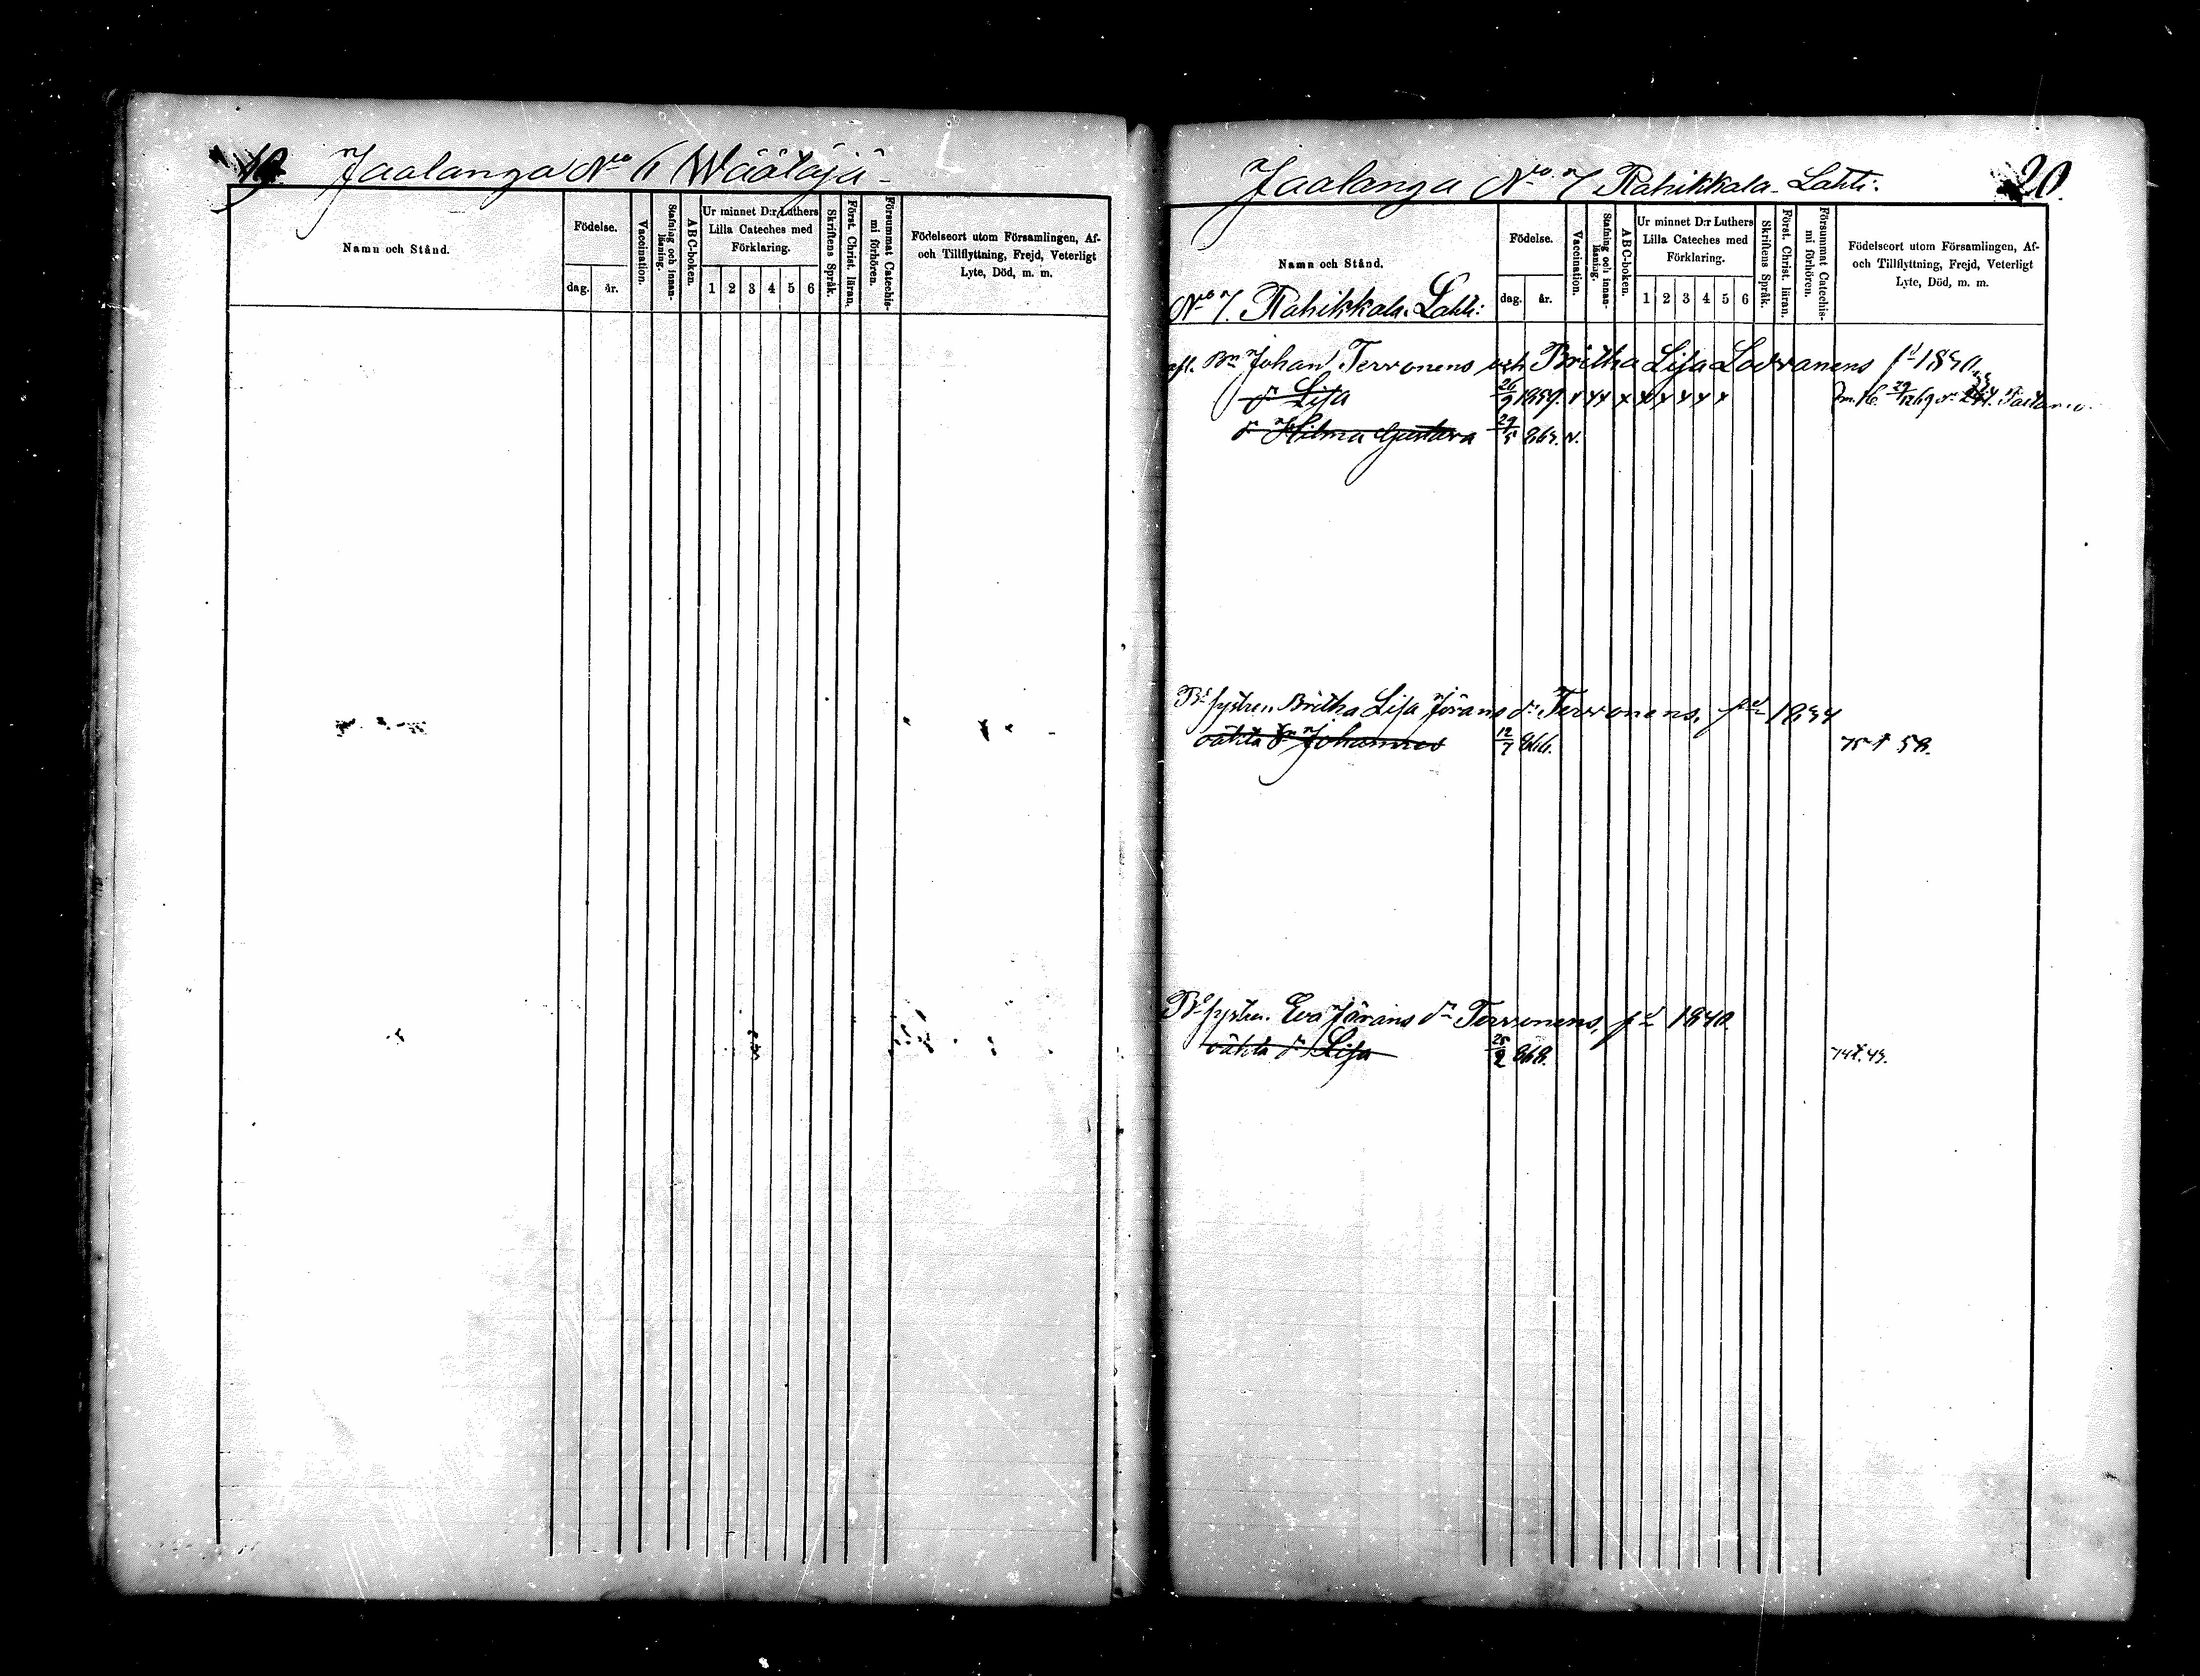 19. Jaalanga No 6 Wäätäjä.
Namn och Stånd.
Födelse.
dag.
år.
Vaccination.
Stafning och innan-
läsning.
ABC-boken.
Ur minnet D:r Luthers
Lilla Cateches med
Förklaring.
1 2 3 4 5 6
Skriftens Språk.
Först. Christ. läran.
Försummat Catechis-
mi förhören.
Födelseort utom Församlingen, Af-
och Tillflyttning, Frejd, Veterligt
Lyte, Död, m. m.
Jaalanga No 7 Rahikkala-Lahti. 20.
Namn och Stånd.
Födelse.
dag.
år.
Vaccination.
Stafning och innan-
läsning.
ABC-boken.
Ur minnet D:r Luthers
Lilla Cateches med
Förklaring.
1 2 3 4 5 6
Skriftens Språk.
Först. Christ. läran.
Försummat Catechis-
mi förhören.
Födelseort utom Församlingen, Af-
och Tillflyttning, Frejd, Veterligt
Lyte, Död, m. m.
No 7. Rahikkala-Lahti:
Johan Tervonens och Britha Lisa
dr Lisa 26/9 1859. x x x x x x x x x
dr Hilma Gustava 29/5
Bds systren Britha Lisa Jörans dr Tervonens, fd 1834
oäkta Sn Johannes 12/7 866. 58.
Bds systren Eva Jörans dr Tervonens, fd 1840
oäkta dr Lisa 25/2 868.